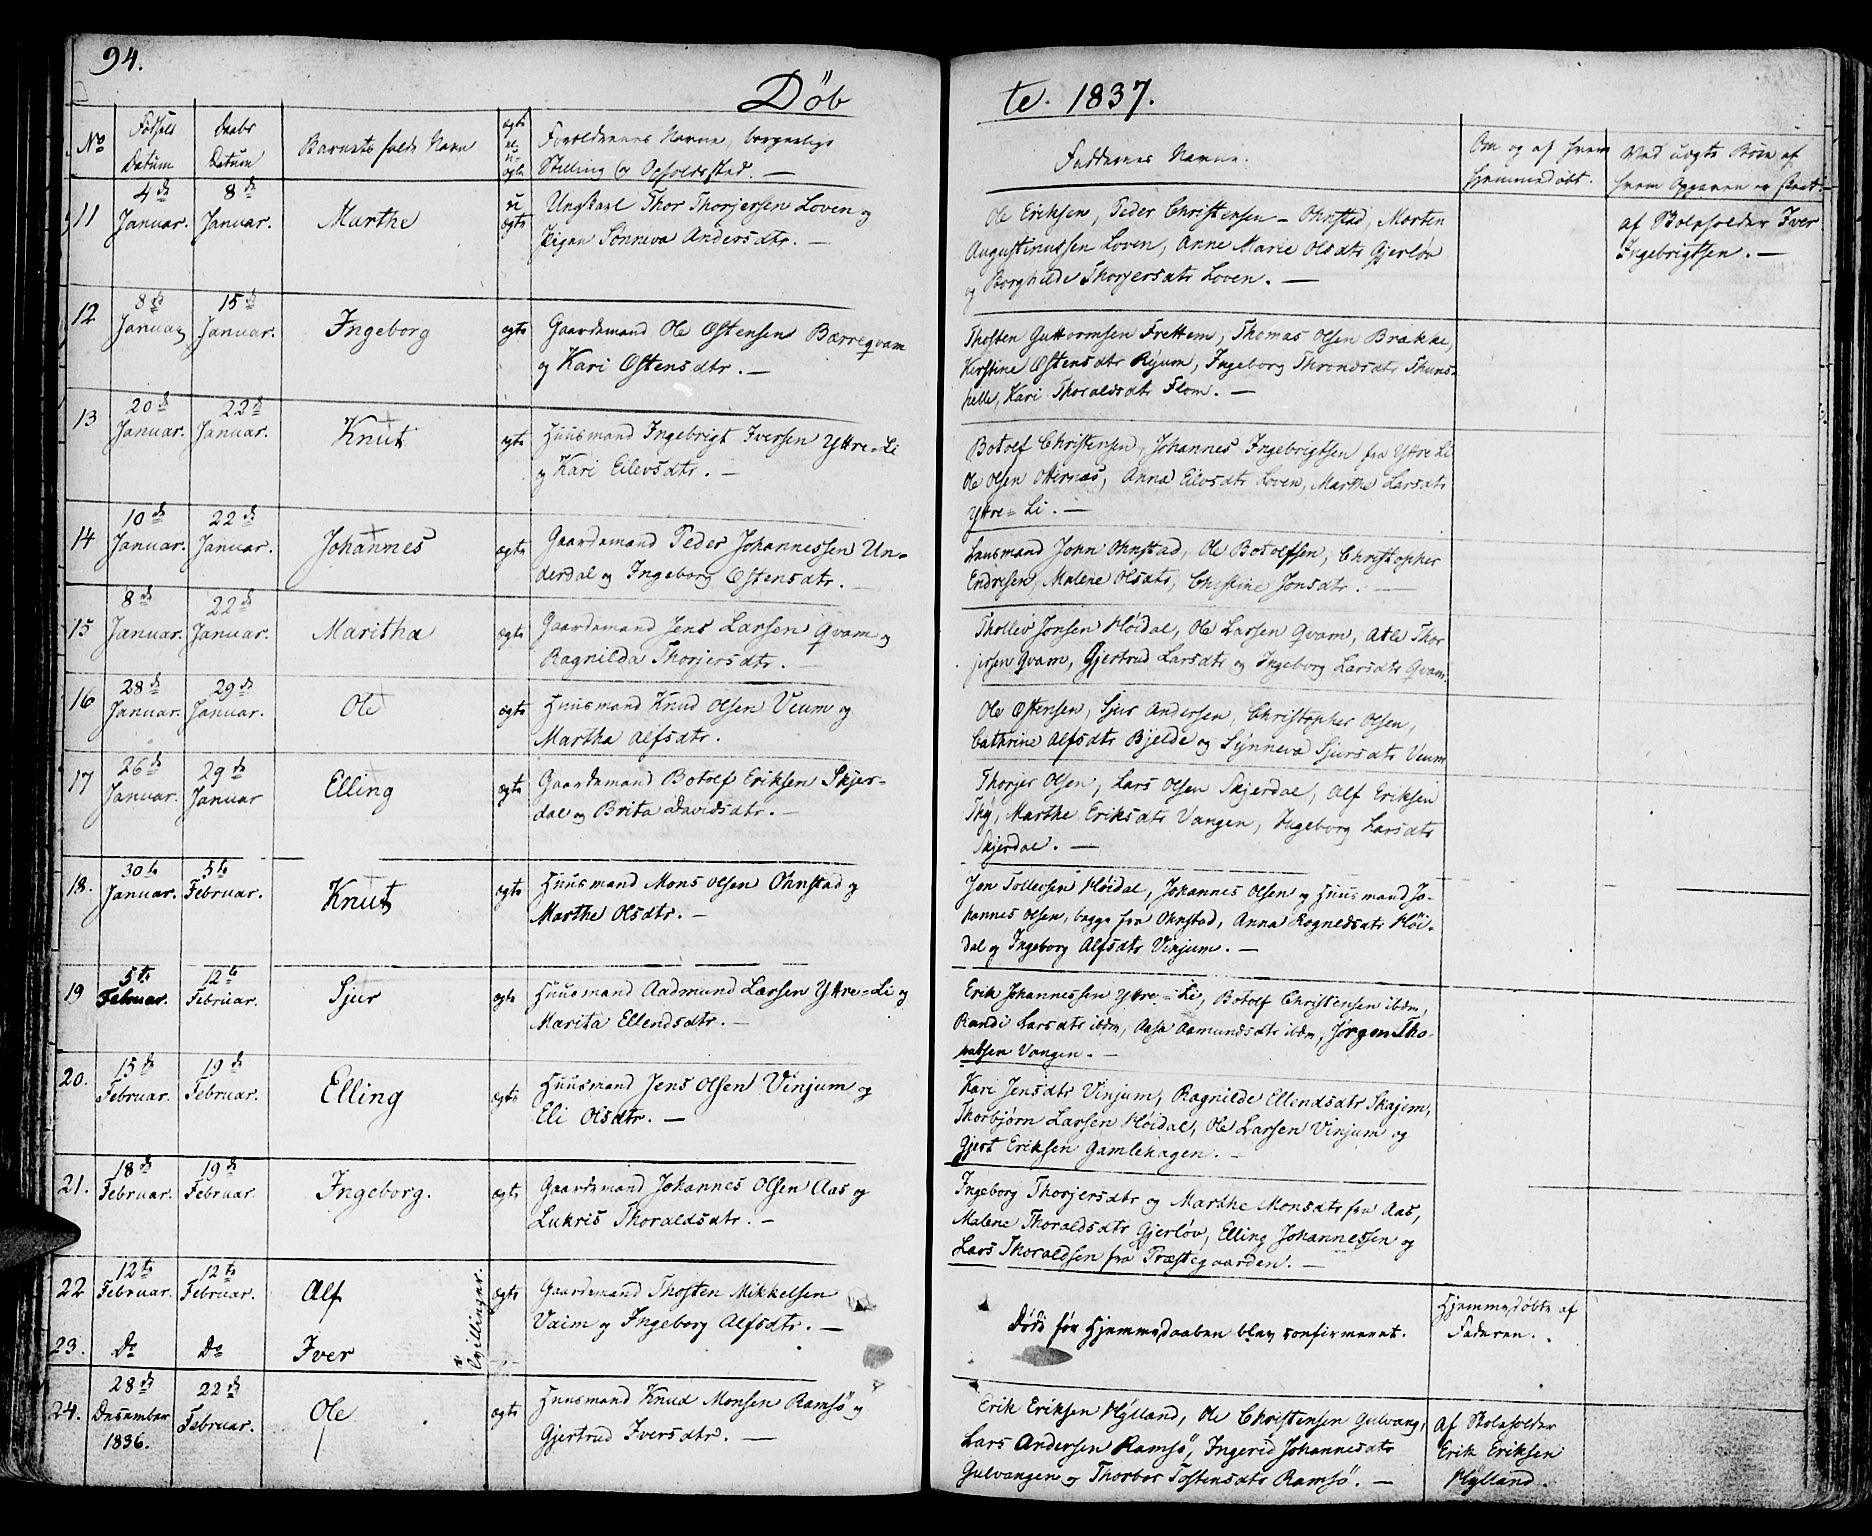 94.
Døb
te. 1837.
No
Fødsels Datum
Daabs Datum
Barnets fulde Navn
ægte el. uægte
Forældrenes Navne, borgerlige
Stilling og Opholdssted. —
Faddernes Navne.
Om og af hvem
hjemmedøbt.
Ved uægte Børn af
hvem Opgaven er skeet. —
11
4de Januar.
8de Januar.
Marthe
uægte
Ungkarl Thor Thorjersen Loven og
Pigen Sønneva Andersdtr. —
Ole Eriksen, Peder Christensen - Ohnstad, Morten
Augustinussen Loven, Anne Marie Olsdtr Gjerløv
og Borghilde Thorjersdtr Loven. —
af Skoleholder Iver
Ingebrigtsen. —
12
8de Januar
15de Januar.
Ingeborg
ægte
Gaardsmand Ole Østensen Bærreqvam
og Kari Østensdtr. —
Thosten Guttormsen Frettem, Thomas Olsen Brække,
Kirstine Østensdtr Ryum, Ingeborg Throndsdtr Thuns-
helle, Kari Thoraldsdtr Flom. —
13
20de Januar.
22de Januar.
Knut
ægte
Huusmand Ingebrigt Iversen Yttre-Li
og Kari Eilevsdtr. —
Botolf Christensen, Johannes Ingebrigtsen fra Yttre Li
Ole Olsen Otternæs, Anna Eilevsdtr Loven, Marthe Larsdtr
Yttre-Li. —
14
10de Januar.
22de Januar.
Johannes
ægte
Gaardsmand Peder Johannessen Un-
derdal og Ingeborg Østensdtr. —
Lensmand John Ohnstad, Ole Botolfsen, Christopher
Endresen, Malene Olsdtr, Christine Jonsdtr. —
15
8de Januar.
22de Januar.
Maritha
ægte
Gaardsmand Jens Larsen Qvam og
Ragnilda Thorjersdtr. —
Thollev Jonsen Høidal, Ole Larsen Qvam, Atle Thor
jersen Qvam, Gjertrud Larsdtr og Ingeborg Larsdtr Qvam.
16
28de Januar.
29de Januar.
Ole
ægte
Huusmand Knud Olsen Veum og
Martha Alfsdtr.
Ole Østensen, Sjur Andersen, Christopher Olsen,
Cathrine Alfsdtr Bjelde og Synneva Sjursdtr Veum
17
26de Januar.
29de Januar
Elling
ægte
Gaardsmand Botolf Eriksen Skjer-
dal og Brita Davidsdtr. —
Thorjer Olsen, Lars Olsen Skjerdal, Alf Eriksen
Thy, Marthe Eriksdtr Vangen, Ingeborg Larsdtr
Skjerdal. —
18.
30te Januar.
5te Februar.
Knut
ægte
Huusmand Mons Olsen Ohnstad og
Marthe Olsdtr. —
Jon Tollevsen Høidal, Johannes Olsen og Huusmand Jo-
hannes Olsen, begge fra Ohnstad, Anna Rognedsdtr Høi-
dal og Ingeborg Alfsdtr Vinjum. —
19
5te Februar.
12te Februar.
Sjur
ægte
Huusmand Aadmund Larsen Yttre-Li og
Marita Ellendsdtr. —
Erik Johannessen Yttre-Li, Botolf Christensen ibdm,
Randi Larsdtr ibdm, Aasa Aamundsdtr ibdm, Jørgen Tho-
massen Vangen. —
20.
15de Februar.
19de Februar.
Elling
ægte
Huusmand Jens Olsen Vinjum og
Eli Olsdtr. —
Kari Jensdtr Vinjum, Ragnilde Ellendsdtr Skajem,
Thorbjørn Larsen Høidal, Ole Larsen Vinjum og
Gjert Eriksen Gamlehagen. —
21.
18de Februar.
19de Februar.
Ingeborg.
ægte
Gaardsmand Johannes Olsen Aas og
Lukris Thoraldsdtr. —
Ingeborg Thorjersdtr og Marthe Monsdtr fra Aas,
Malene Thoraldsdtr Gjerløv, Elling Johannessen og
Lars Thoraldsen fra Præstegaarden. —
22
12te Februar.
12te Februar.
Alf
Tvillinger.
ægte
Gaardsmand Thosten Mikkelsen
Vaim og Ingeborg Alfsdtr. —
Døde før Hjemmedaaben blev confirmeret.
Hjemmedøbte af
Faderen.
23.
Do
Do
Iver
24.
28de Desember 1836.
22de Februar.
Ole
ægte
Huusmand Knud Monsen Ramsø og
Gjertrud Iversdtr. —
Erik Eriksen Hylland, Ole Christensen Gulvang,
Lars Andersen Ramsø, Ingerid Johannesdtr
Gulvangen og Thorbor Tostensdtr Ramsø. —
af Skoleholder
Erik Eriksen
Hylland.